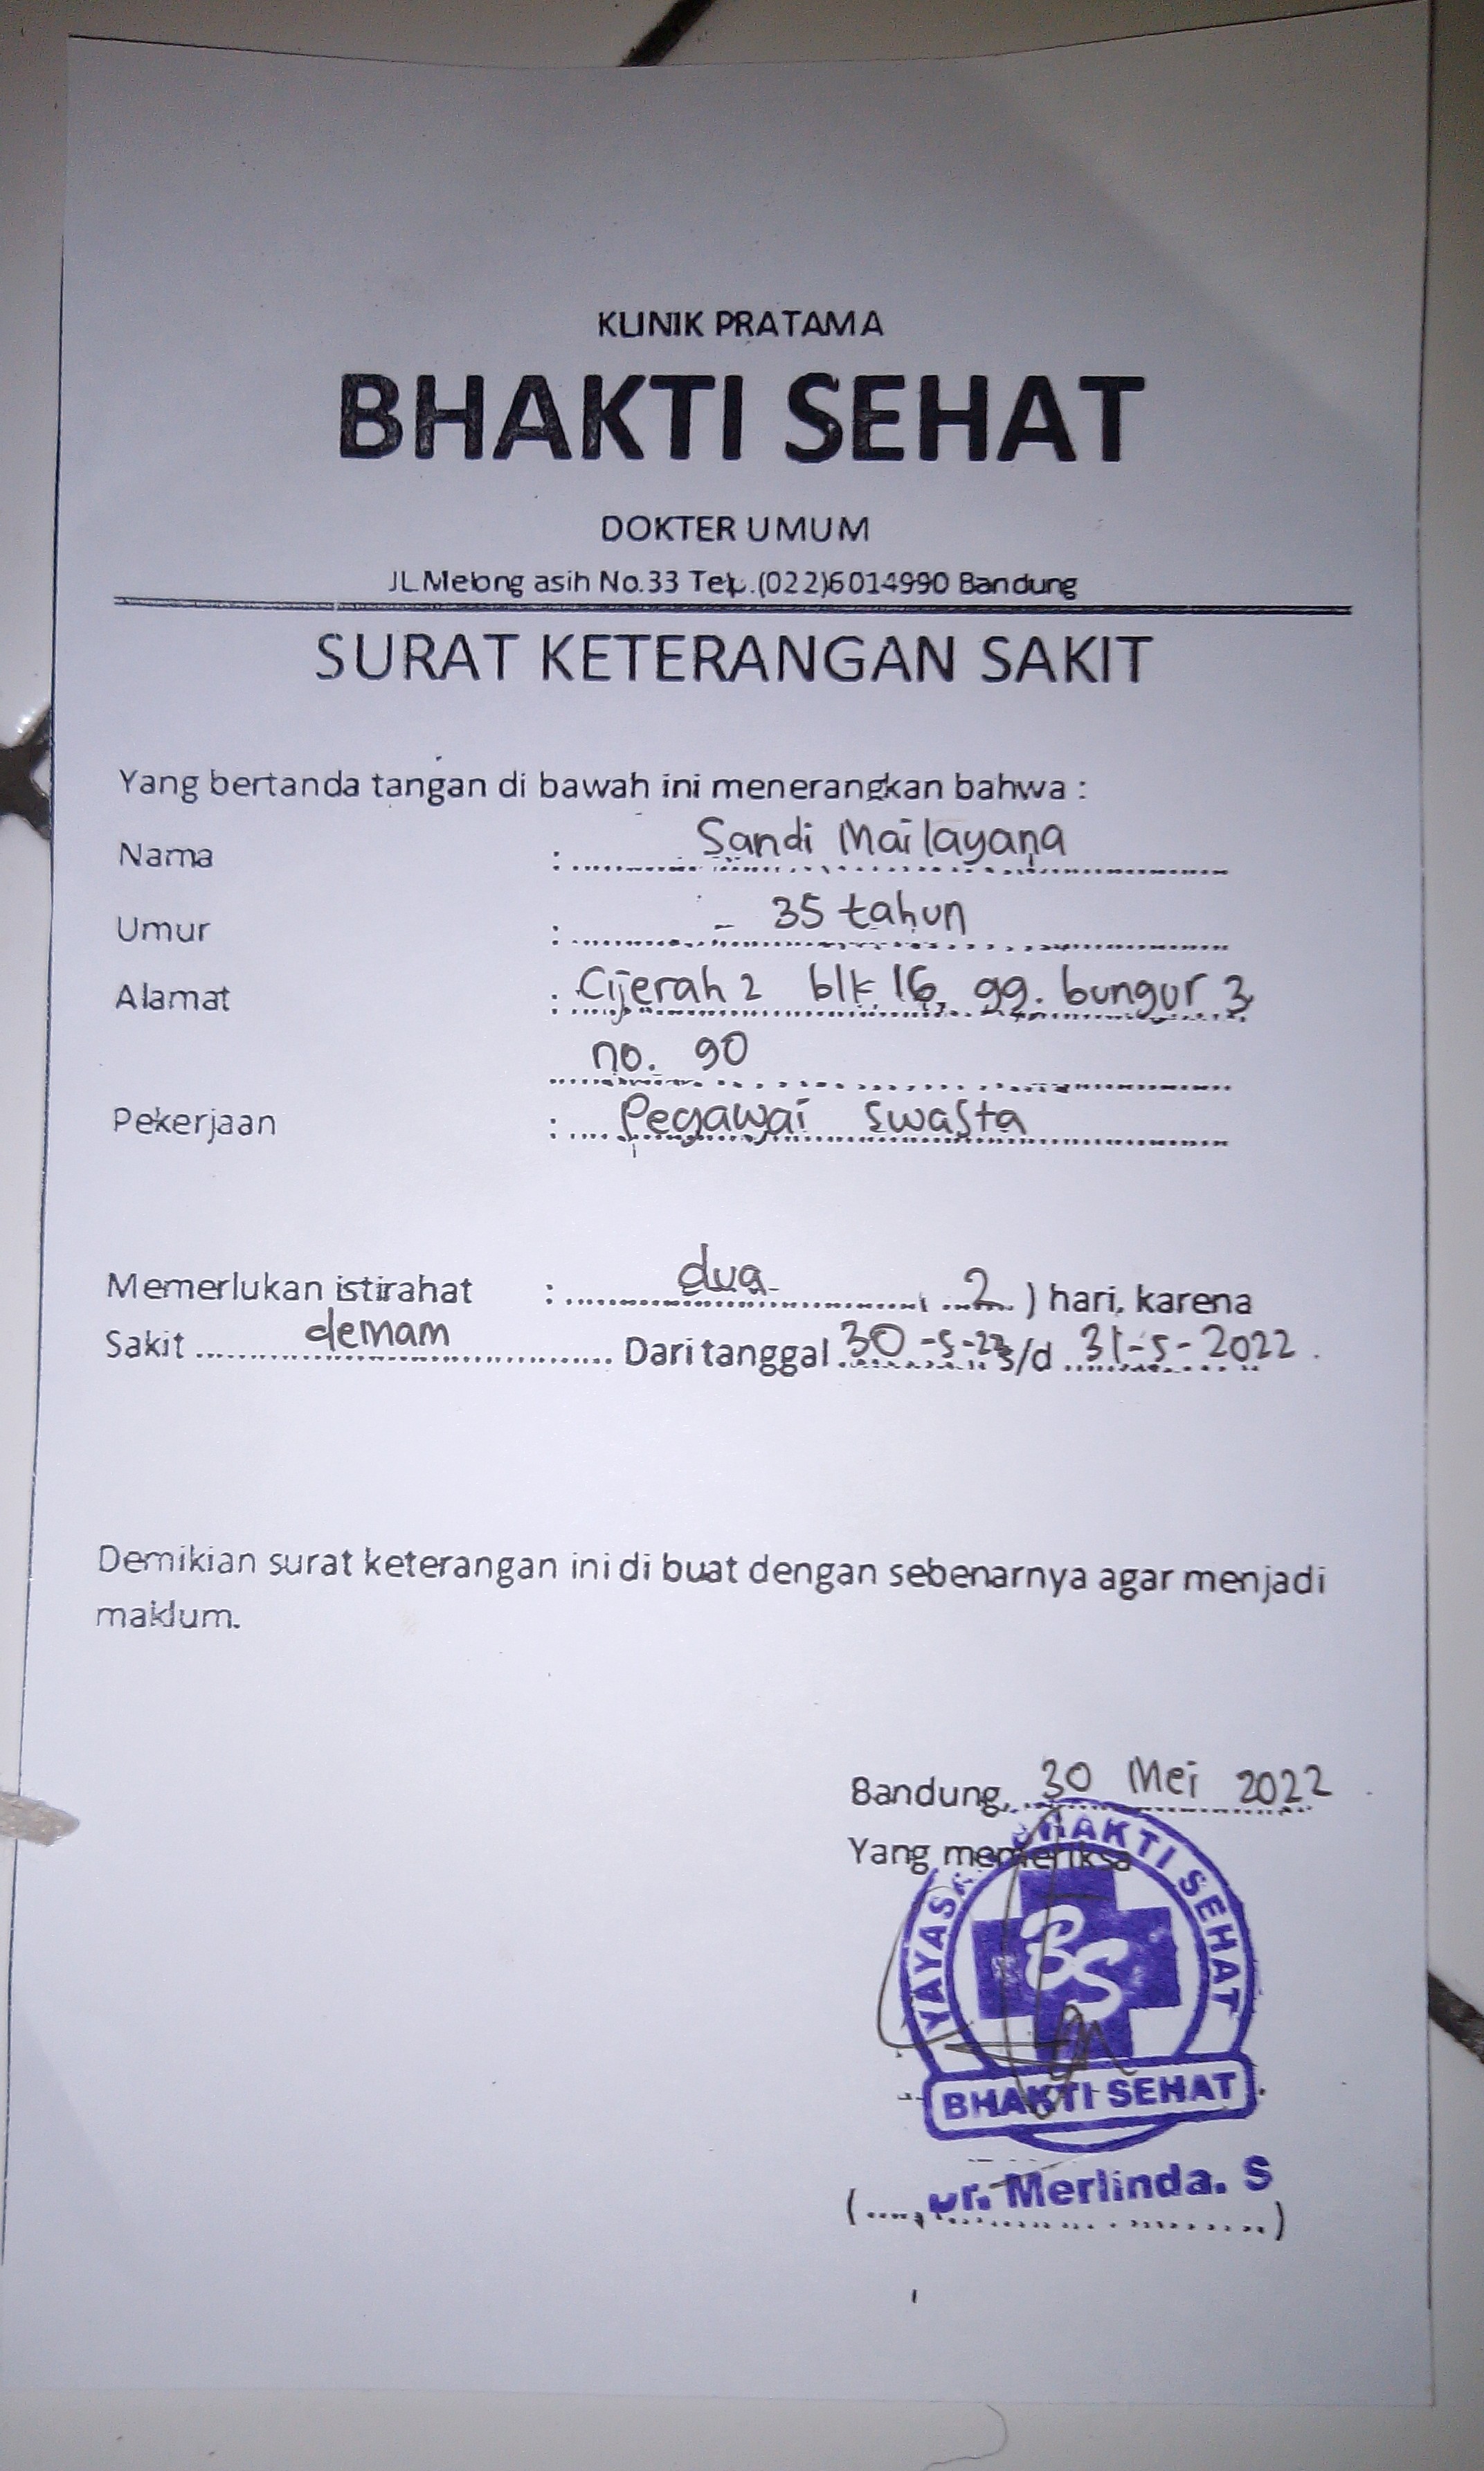 KLINIK PRATAMA
BHAKTI SEHAT
DOKTER UMUM
JL.Melong asih No.33 Telp.(022)6014990 Bandung
SURAT KETERANGAN SAKIT
Yang bertanda tangan di bawah ini menerangkan bahwa :
Nama : Sandi Mailayana
Umur : 35 tahun
Alamat : Cijerah 2 blk 16, gg. bungur 3
no. 90
Pekerjaan : Pegawai swasta
Memerlukan istirahat : dua ( 2 ) hari, karena
Sakit demam Dari tanggal 30-5-22 s/d 31-5-2022
Demikian surat keterangan ini di buat dengan sebenarnya agar menjadi
maklum.
Bandung, 30 Mei 2022
Yang memeriksa
BHAKTI SEHAT
BS
BHAKTI SEHAT
(Dr. Merlinda. S)